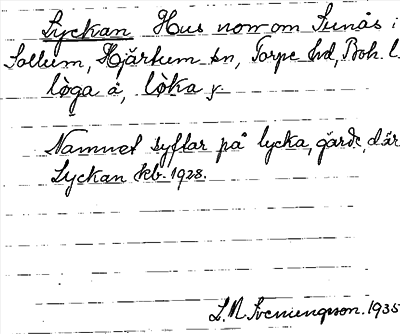 Lyckan Hus norr om Sunås i
Sollum, Hjärtum sn, Torpe hd, Boh. l.
lòga å, lòka y.
Namnet syftar på lycka, gärde, där
Lyckan kb. 1928.
L.N. Svenungsson. 1935